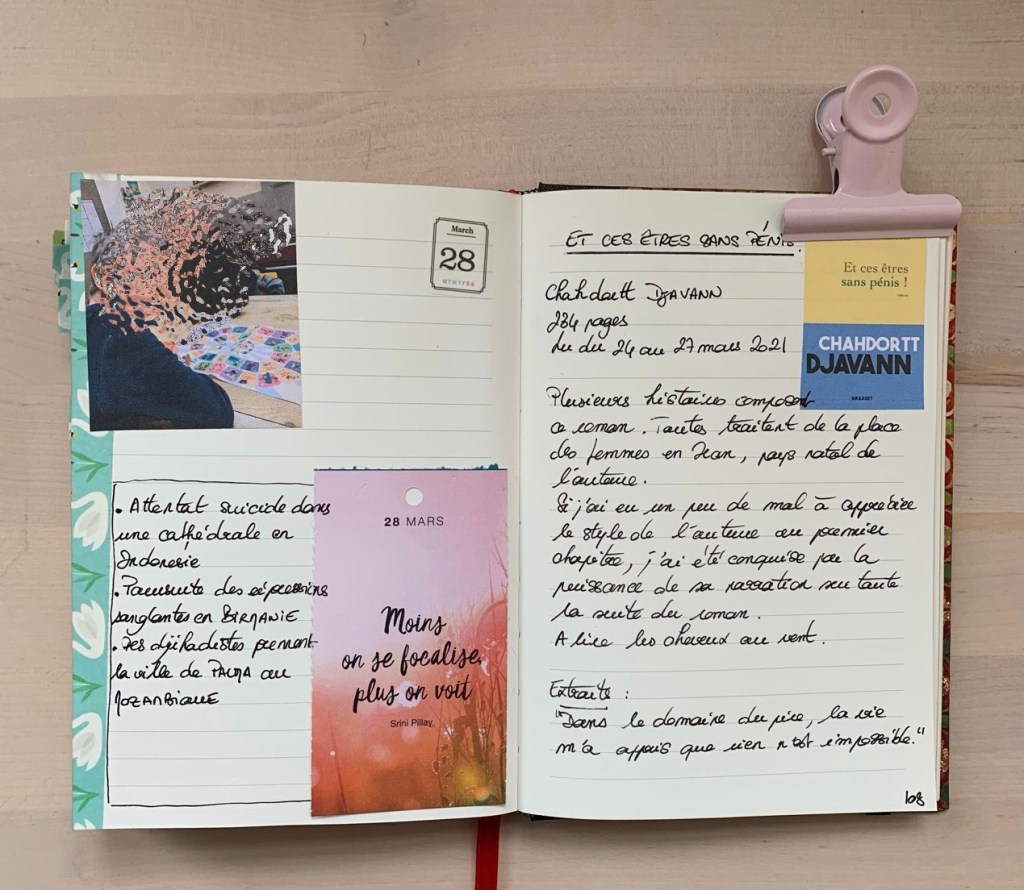 March
28
M T W T F S S
• Attentat suicide dans
une cathédrale en
Indonésie
• Poursuite des répressions
sanglantes en BIRMANIE
• Des djihadistes prennent
la ville de PALMA au
MOZAMBIQUE
28 MARS
Moins
on se focalise,
plus on voit
Srini Pillay
ET CES ÊTRES SANS PÉNIS.
Chahdortt DJAVANN
234 pages
Lu du 24 au 27 mars 2021
Et ces êtres
sans pénis !
CHAHDORTT
DJAVANN
GRASSET
Plusieurs histoires composent
ce roman. Toutes traitent de la place
des femmes en Iran, pays natal de
l'auteure.
Si j'ai eu un peu de mal à apprécier
le style de l'auteure au premier
chapitre, j'ai été conquise par la
puissance de sa narration sur toute
la suite du roman.
A lire les cheveux au vent.
Extraits :
"Dans le domaine du pire, la vie
m'a appris que rien n'est impossible."
108